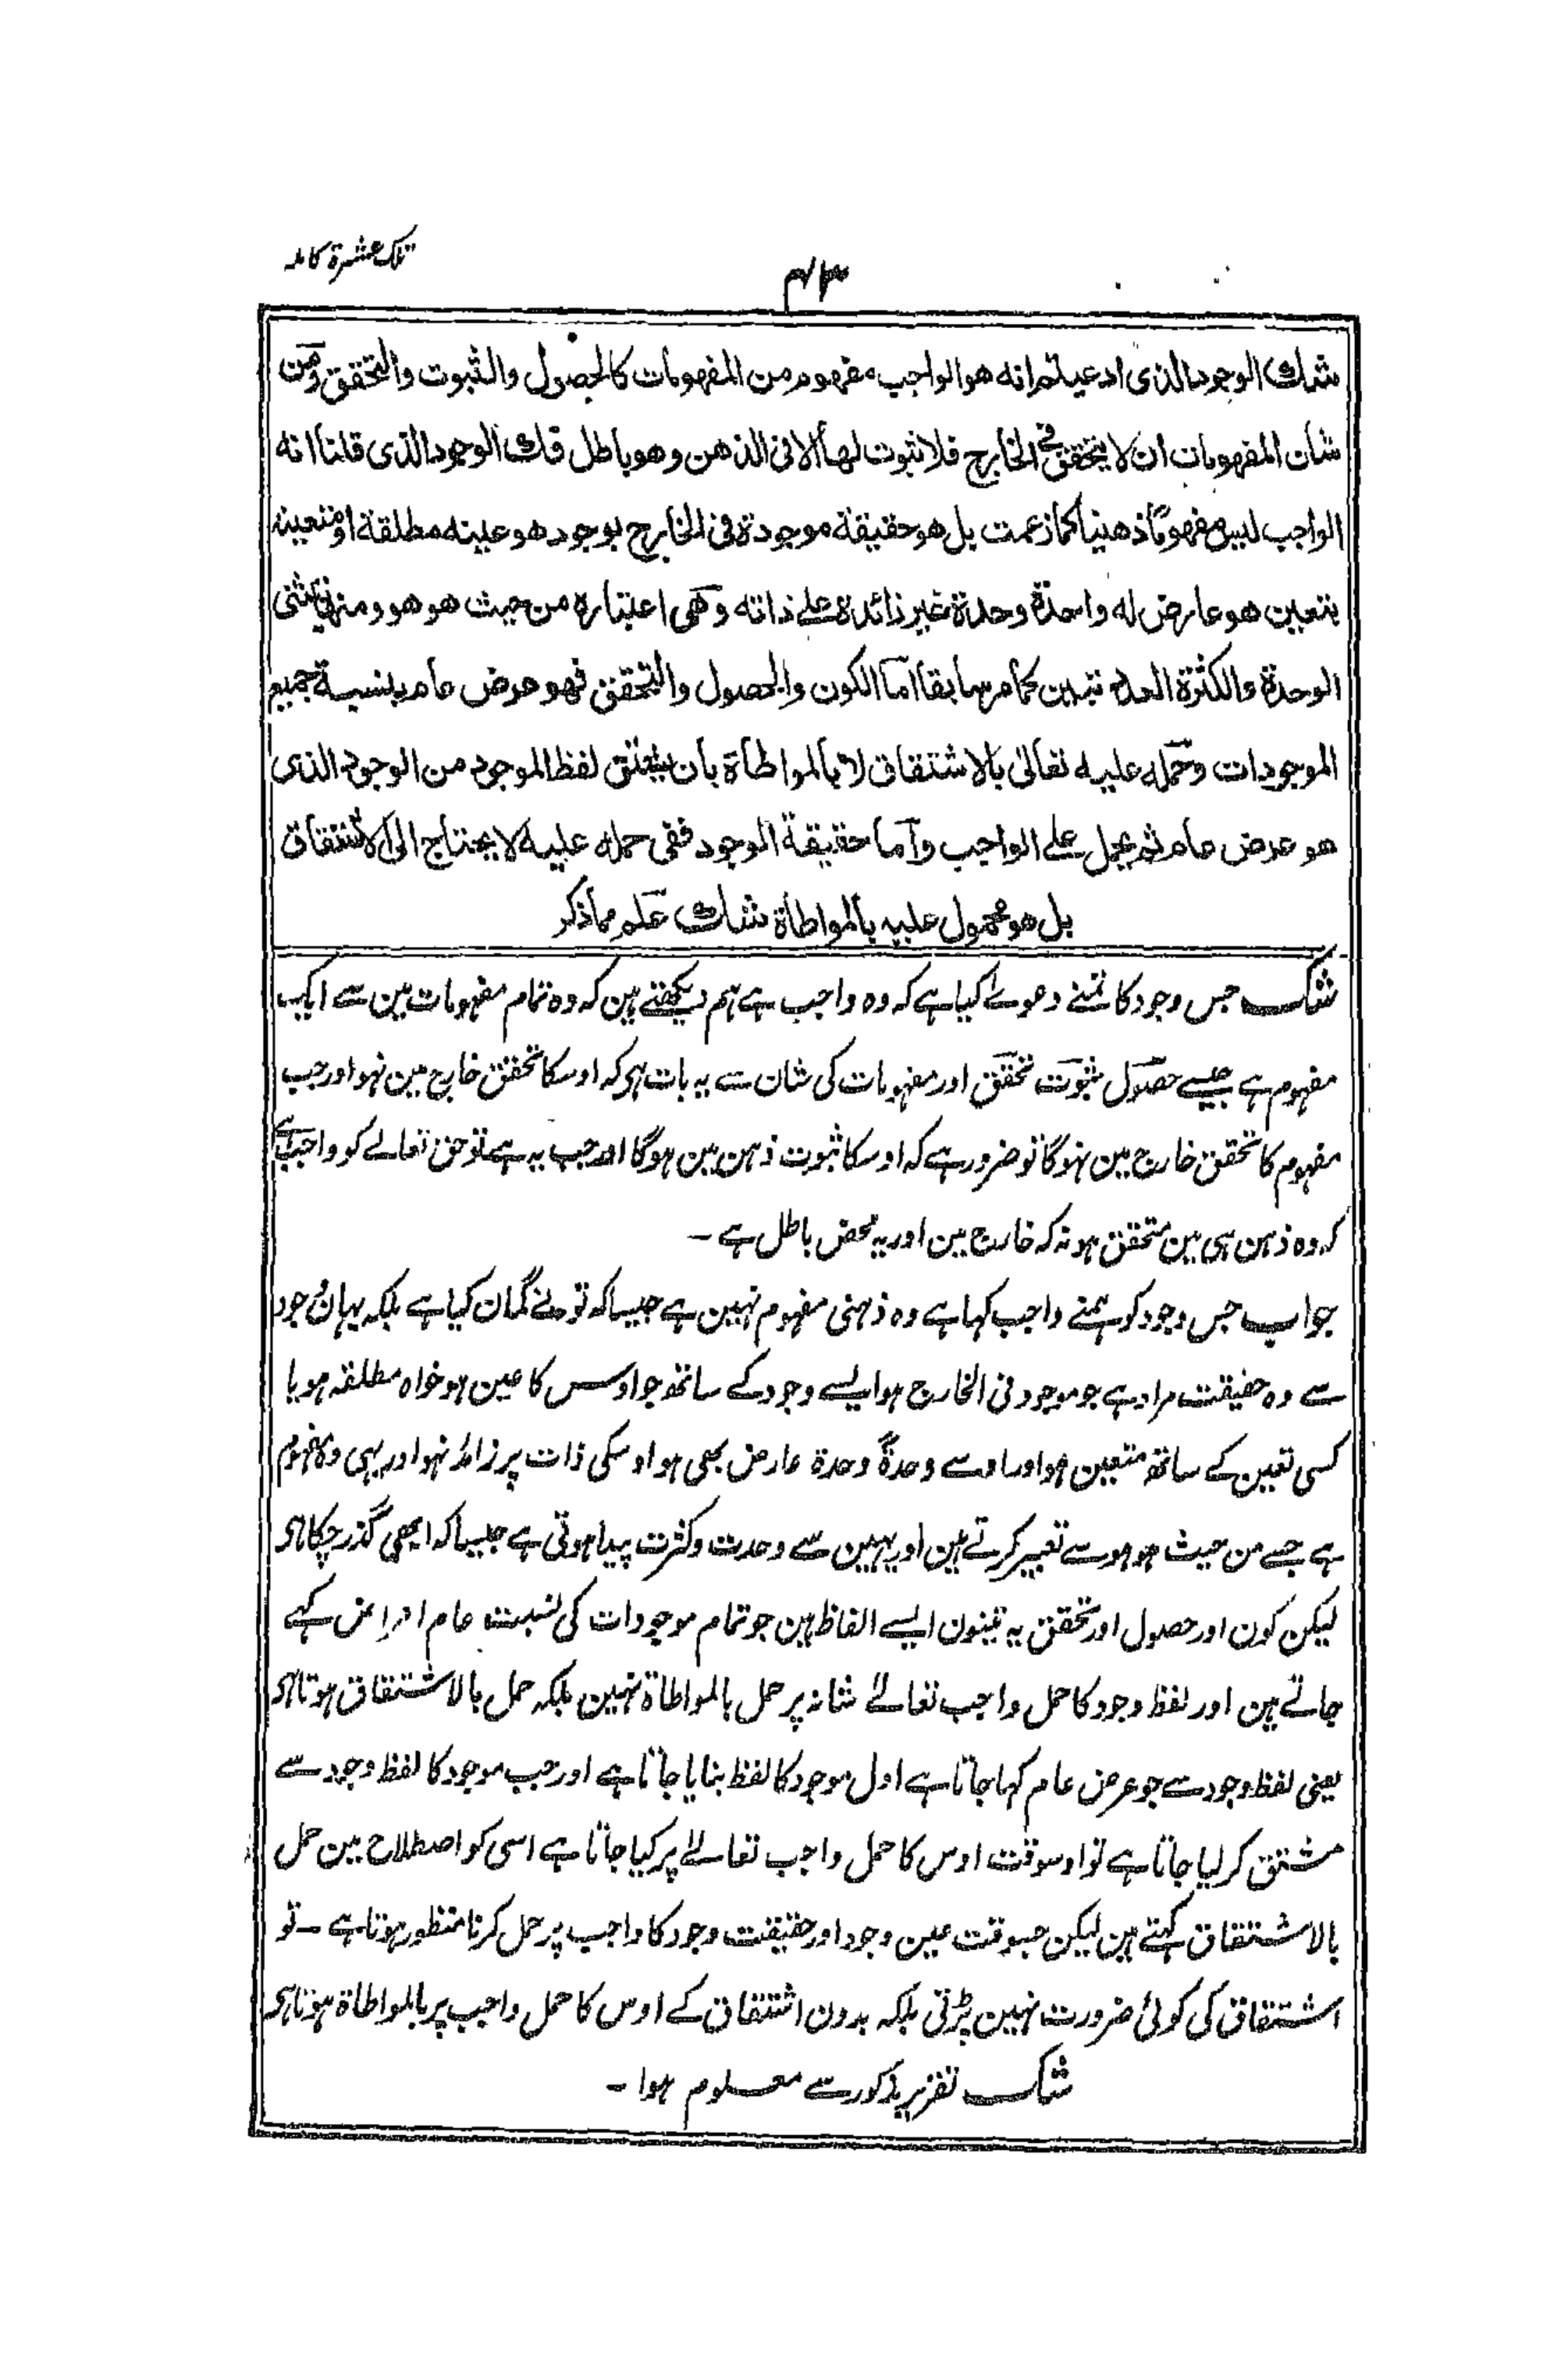 تلک عشرة کاملہ
۴۳
شك الوجود الذی ادعیتم انه هو الواجب مفهوم من المفهومات کالحصول والثبوت والتحقق ومن
شان المفهومات ان لا یتحقق فی الخارج فلا ثبوت لها الا فی الذهن وهو باطل قلت الوجود الذی قلنا انه
الواجب لیس مفهوما ذهنیا کما زعمت بل هو حقیقة موجودة فی الخارج بوجود هو عینه مطلقة او متعینة
بتعین هو عارض له واحدة وحدة غیر زائدة علی ذاته وهی اعتباره من حیث هو هو ومنها
الوحدة والکثرة کما مر سابقا اما الکون والحصول والتحقق فهو عرض عام بنسبة جمیع
الموجودات وحمله علیه تعالی بالاشتقاق لا بالمواطاة بان یشتق لفظ الموجود من الوجود الذی
هو عرض عام ثم یحمل علی الواجب واما حقیقة الوجود ففی حمله علیه لا یحتاج الی الاشتقاق
بل هو محمول علیه بالمواطاة شك علم مما ذکر
شک جس وجود کا تمنے دعوے کیا ہے کہ وہ واجب ہے ہم دیکھتے ہین کہ وہ تمام مفہومات مین سے ایک
مفہوم ہے جیسے حصول ثبوت تحقق اور مفہومات کی شان سے یہ بات ہی کہ اوسکا تحقق خارج مین نہو اور جب
مفہوم کا تحقق خارج مین نہوگا تو ضرور ہے کہ اوسکا ثبوت ذہن مین ہوگا اور جب یہ ہے تو حق تعالے کو واجب ہے
کہ وہ ذہن ہی مین متحقق ہو نہ کہ خارج مین اور یہ محض باطل ہے ۔
جواب جس وجود کو ہمنے واجب کہا ہے وہ ذہنی مفہوم نہین ہے جیسا کہ تو نے گمان کیا ہے بلکہ یہان وجود
سے وہ حقیقت مراد ہے جو موجود فی الخارج ہو ایسے وجود کے ساتھ جو اوس کا عین ہو خواہ مطلقہ ہو یا
کسی تعین کے ساتھ متعین ہو اور اوسے وحدۃً وحدۃ عارض بھی ہو اوسکی ذات پر زائد نہو اور یہی وہ مفہوم
ہے جسے من حیث ہو ہو سے تعبیر کرتے ہین اور یہین سے وحدت وکثرت پیدا ہوتی ہے جیسا کہ ابھی گذر چکا ہی
لیکن کون اور حصول اور تحقق یہ تینون ایسے الفاظ ہین جو تمام موجودات کی نسبت عام اعراض کہے
جاتے ہین اور لفظ وجود کا حمل واجب تعالے شانہ پر حمل بالمواطاۃ نہین بلکہ حمل بالاشتقاق ہوتا ہی
یعنی لفظ وجود سے جو عرض عام کہا جاتا ہے اول موجود کا لفظ بنایا جاتا ہے اور جب موجود کا لفظ وجود سے
مشتق کر لیا جاتا ہے تو اوسوقت اوس کا حمل واجب تعالے پر کیا جاتا ہے اسی کو اصطلاح مین حمل
بالاشتقاق کہتے ہین لیکن جسوقت عین وجود اور حقیقت وجود کا واجب پر حمل کرنا منظور ہوتا ہے ۔ تو
اشتقاق کی کوئی ضرورت نہین پڑتی بلکہ بدون اشتقاق کے اوس کا حمل واجب پر بالمواطاۃ ہوتا ہی
شک تقریر مذکور سے معلوم ہوا ۔